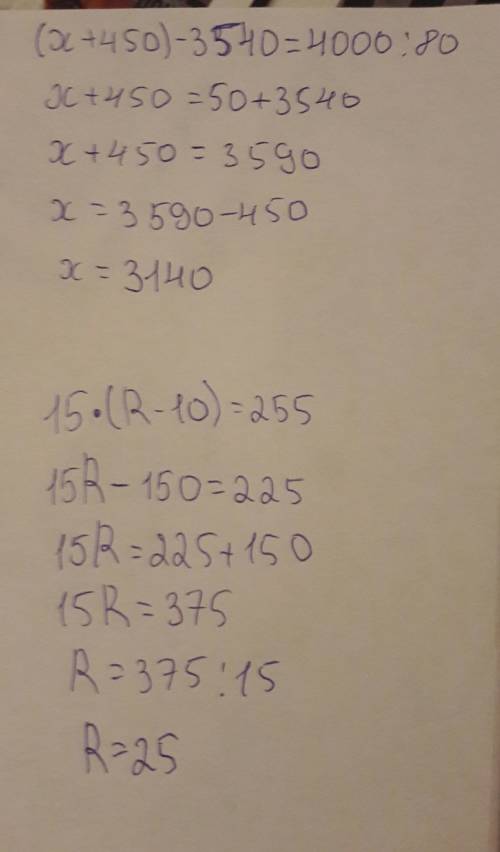 (x+450)-3540=4000:80
x+450=50+3540
x+450=3590
x=3590-450
x=3140
15•(R-10)=255
15R-150=225
15R=225+150
15R=375
R=375:15
R=25